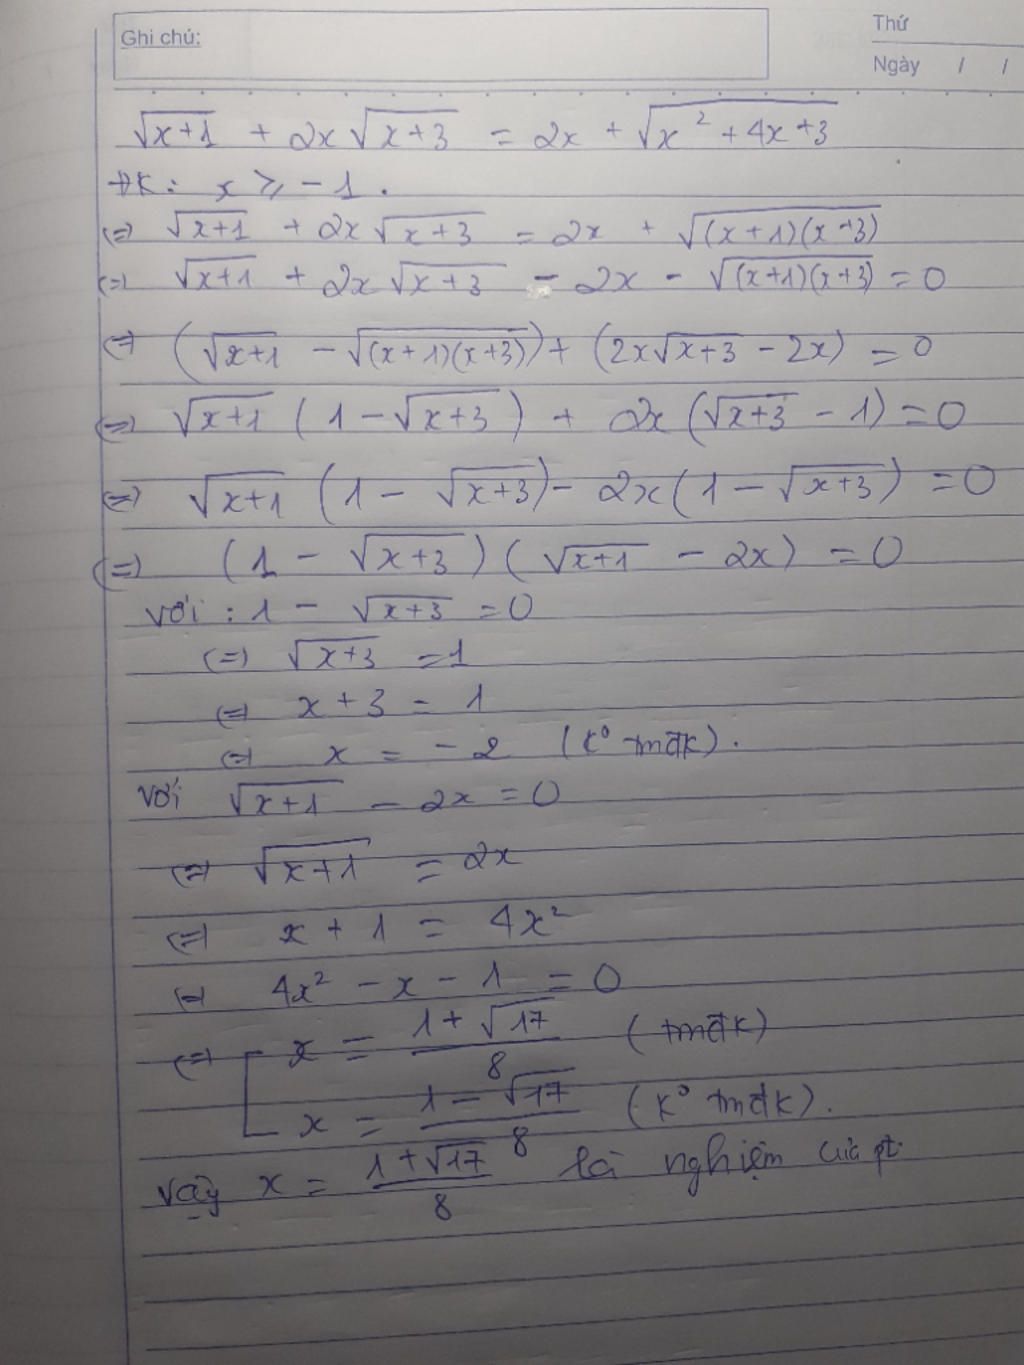 Ghi chú:
Thứ
Ngày / /
√(x+1) + 2x√(x+3) = 2x + √(x² + 4x + 3)
ĐK: x ≥ -1.
(=) √(x+1) + 2x√(x+3) = 2x + √((x+1)(x+3))
(=) √(x+1) + 2x√(x+3) - 2x - √((x+1)(x+3)) = 0
(=) (√(x+1) - √((x+1)(x+3))) + (2x√(x+3) - 2x) = 0
(=) √(x+1) (1 - √(x+3)) + 2x(√(x+3) - 1) = 0
(=) √(x+1) (1 - √(x+3)) - 2x(1 - √(x+3)) = 0
(=) (1 - √(x+3)) (√(x+1) - 2x) = 0
với: 1 - √(x+3) = 0
(=) √(x+3) = 1
(=) x + 3 = 1
(=) x = -2 (k° tmđk).
với √(x+1) - 2x = 0
(=) √(x+1) = 2x
(=) x + 1 = 4x²
(=) 4x² - x - 1 = 0
(=) [ x = (1+√17)/8 (tmđk)
x = (1-√17)/8 (k° tmđk).
vậy x = (1+√17)/8 là nghiệm của pt.